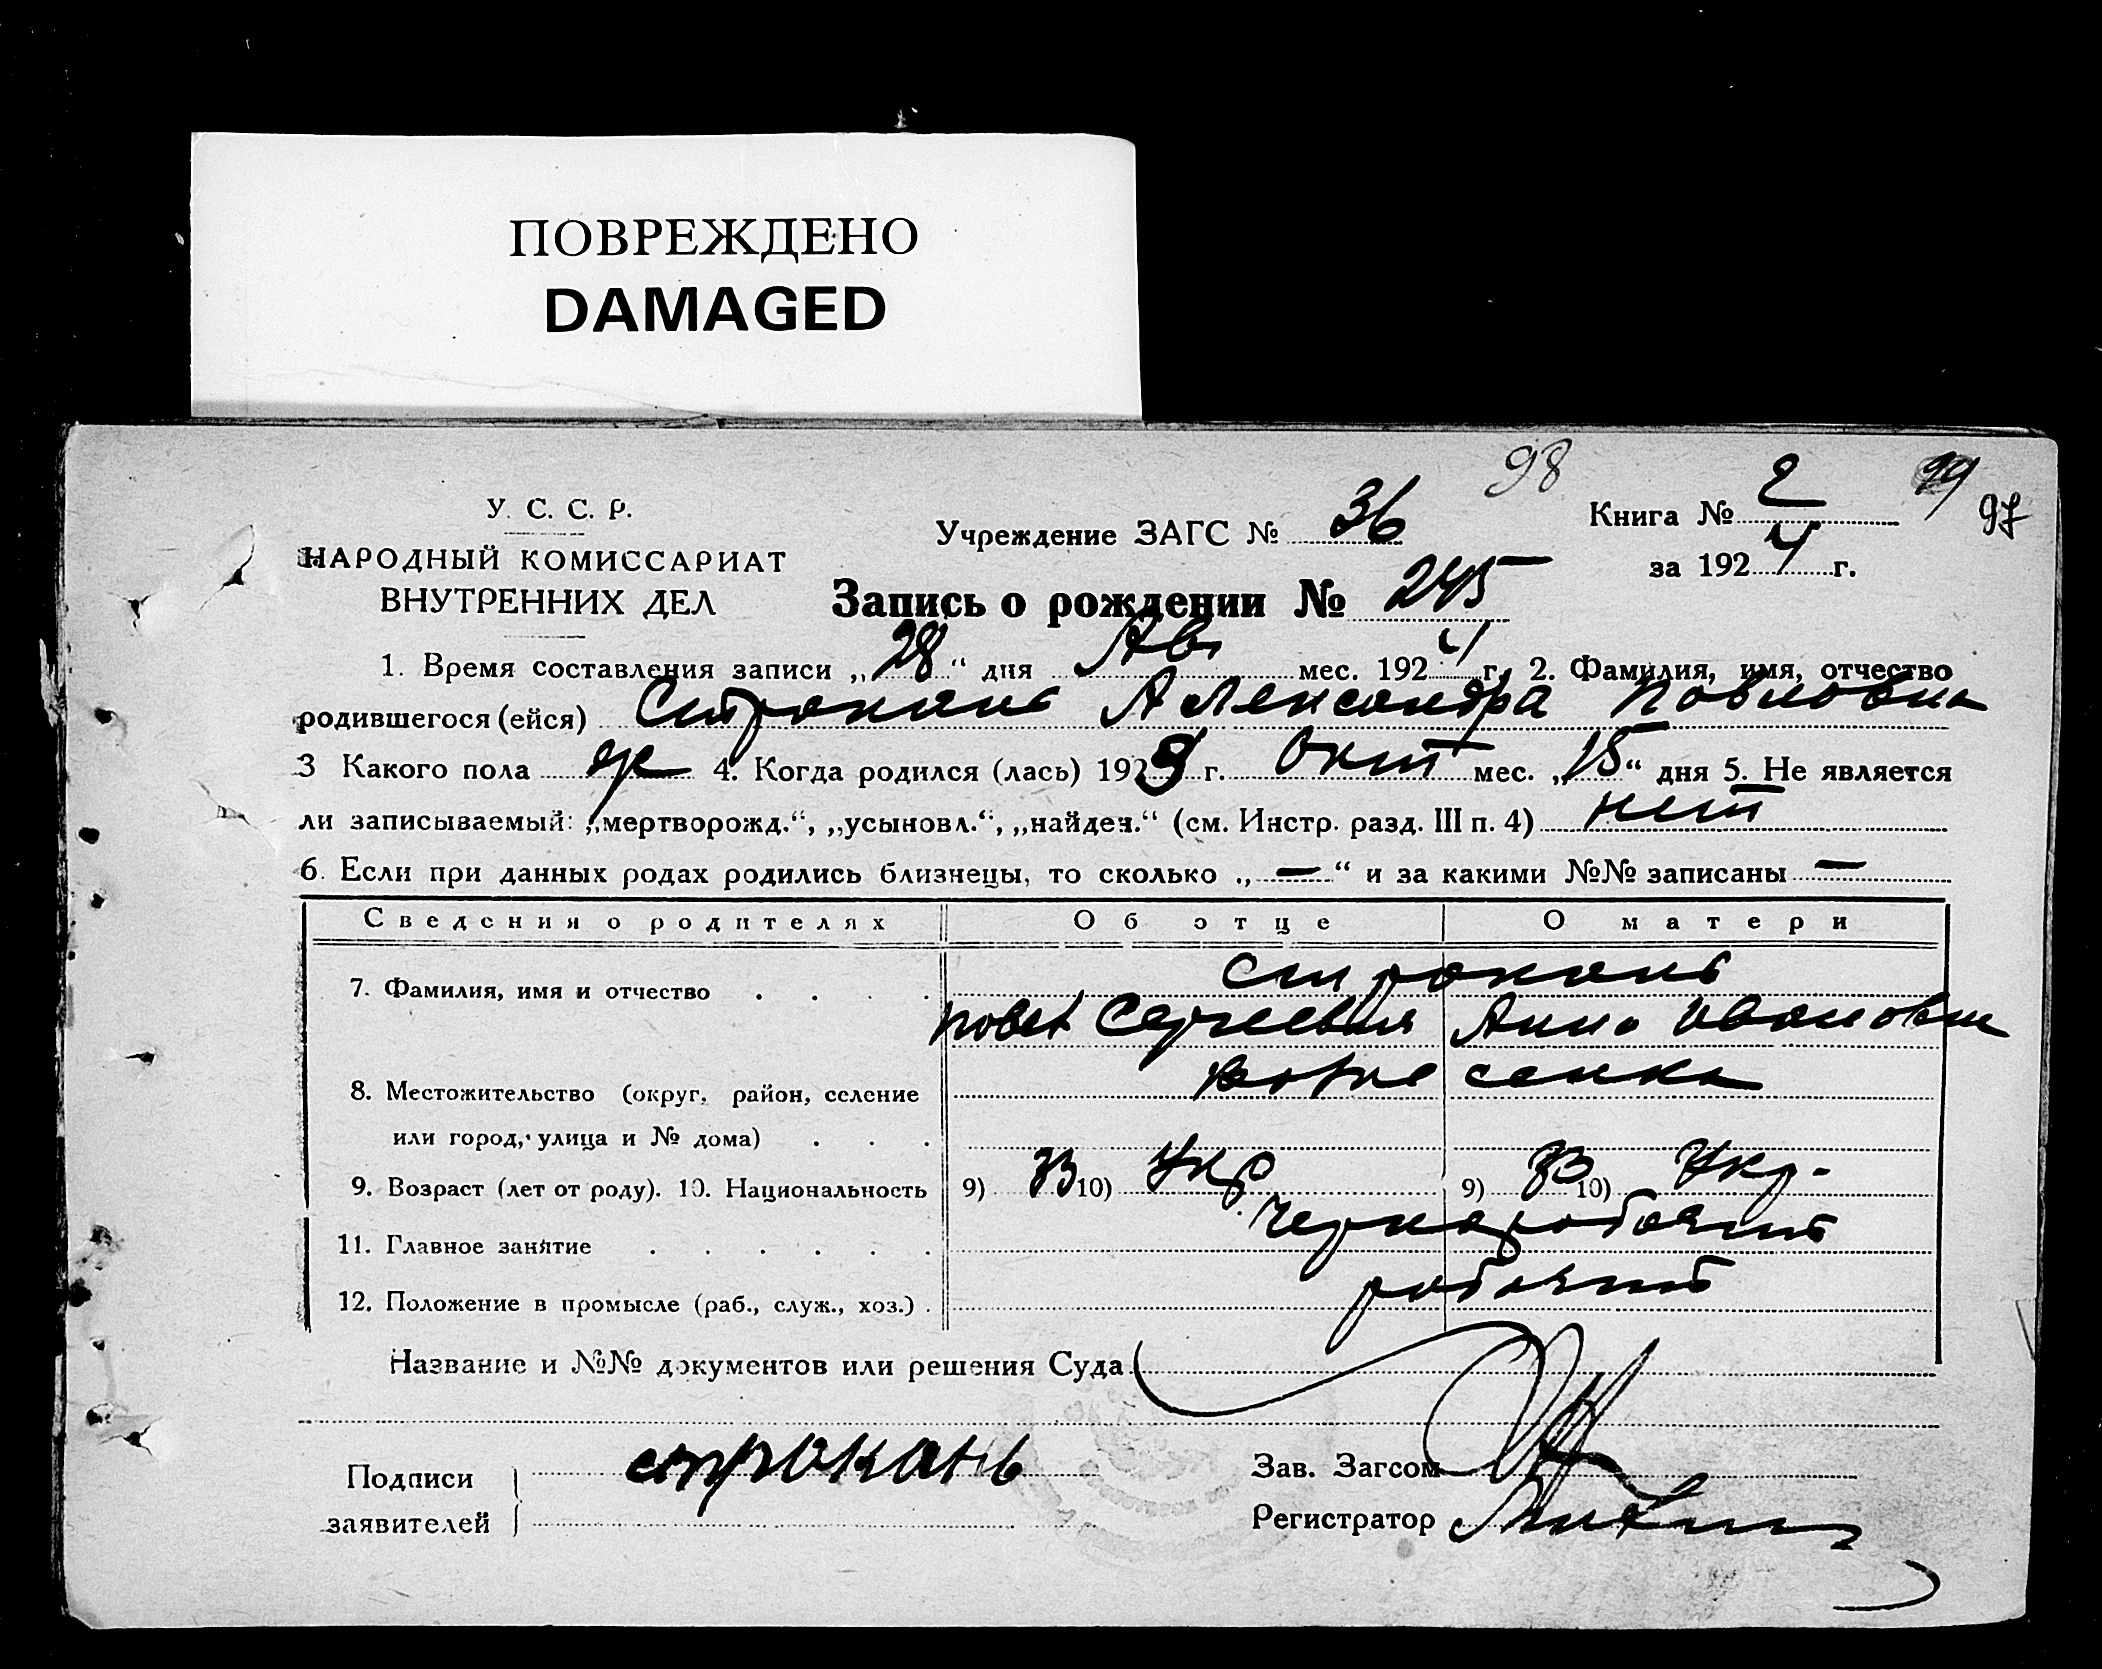 ПОВРЕЖДЕНО
DAMAGED
98
99
97
У. С. С. Р.
НАРОДНЫЙ КОМИССАРИАТ
ВНУТРЕННИХ ДЕЛ
Учреждение ЗАГС № 36
Книга № 2
за 1924 г.
Запись о рождении № 245
1. Время составления записи „28“ дня Ав. мес. 1924 г. 2. Фамилия, имя, отчество
родившегося (ейся) Строкань Александра Повловна
3 Какого пола ж 4. Когда родился (лась) 1923 г. Окт мес. „15“ дня 5. Не является
ли записываемый: „мертворожд.“, „усыновл.“, „найден.“ (см. Инстр. разд. III п. 4) нет
6. Если при данных родах родились близнецы, то сколько „—“ и за какими №№ записаны —
Сведения о родителях Об отце О матери
7. Фамилия, имя и отчество . . . . Строкань
Повел Сергеевич Анна Ивановна
8. Местожительство (округ, район, селение
или город, улица и № дома) . . .
9. Возраст (лет от роду). 10. Национальность 9) 33 10) Укр 9) 33 10) Укр.
11. Главное занятие . . . . . . Чернорабочий
12. Положение в промысле (раб., служ., хоз.) . рабочий
Название и №№ документов или решения Суда
Подписи
заявителей
строкань
Зав. Загсом
Регистратор